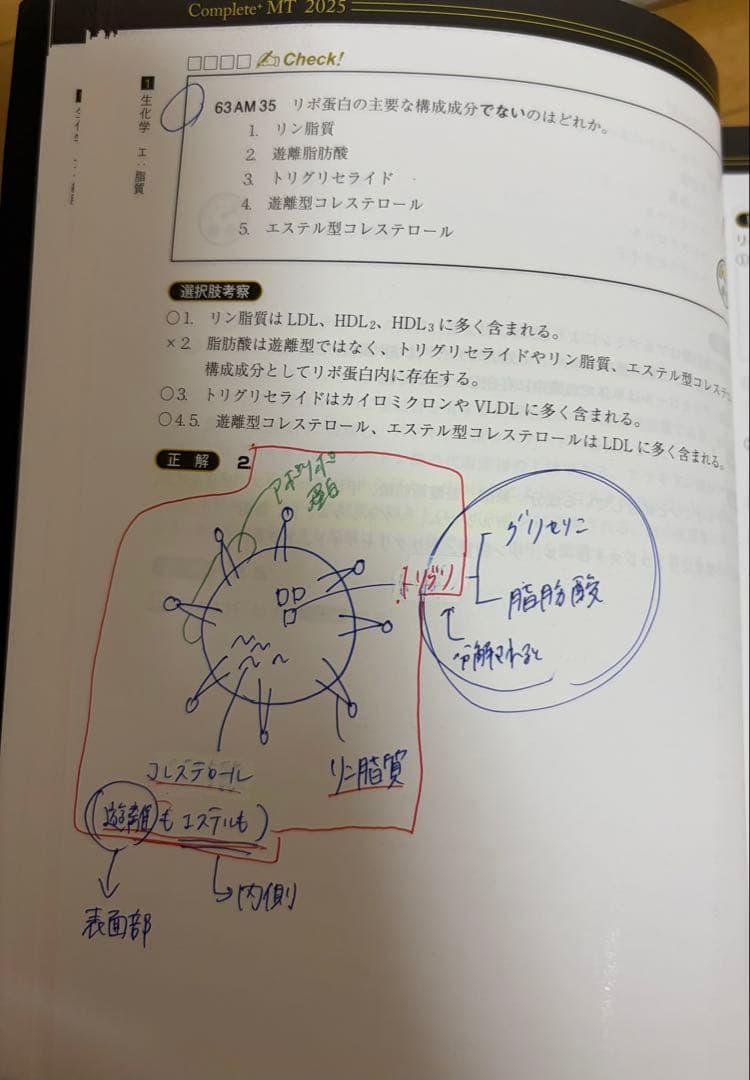 Complete+ MT 2025
□□□□ Check!
1 生化学 エ:脂質
63 AM 35 リポ蛋白の主要な構成成分でないのはどれか。
1. リン脂質
2. 遊離脂肪酸
3. トリグリセライド
4. 遊離型コレステロール
5. エステル型コレステロール
選択肢考察
○1. リン脂質は LDL、HDL₂、HDL₃ に多く含まれる。
×2. 脂肪酸は遊離型ではなく、トリグリセライドやリン脂質、エステル型コレステ
構成成分としてリポ蛋白内に存在する。
○3. トリグリセライドはカイロミクロンや VLDL に多く含まれる。
○4.5. 遊離型コレステロール、エステル型コレステロールは LDL に多く含まれる。
正解 2
アポリポ
蛋白
トリグリ
グリセリン
脂肪酸
分解されると
コレステロール
リン脂質
(遊離も エステルも)
内側
表面部